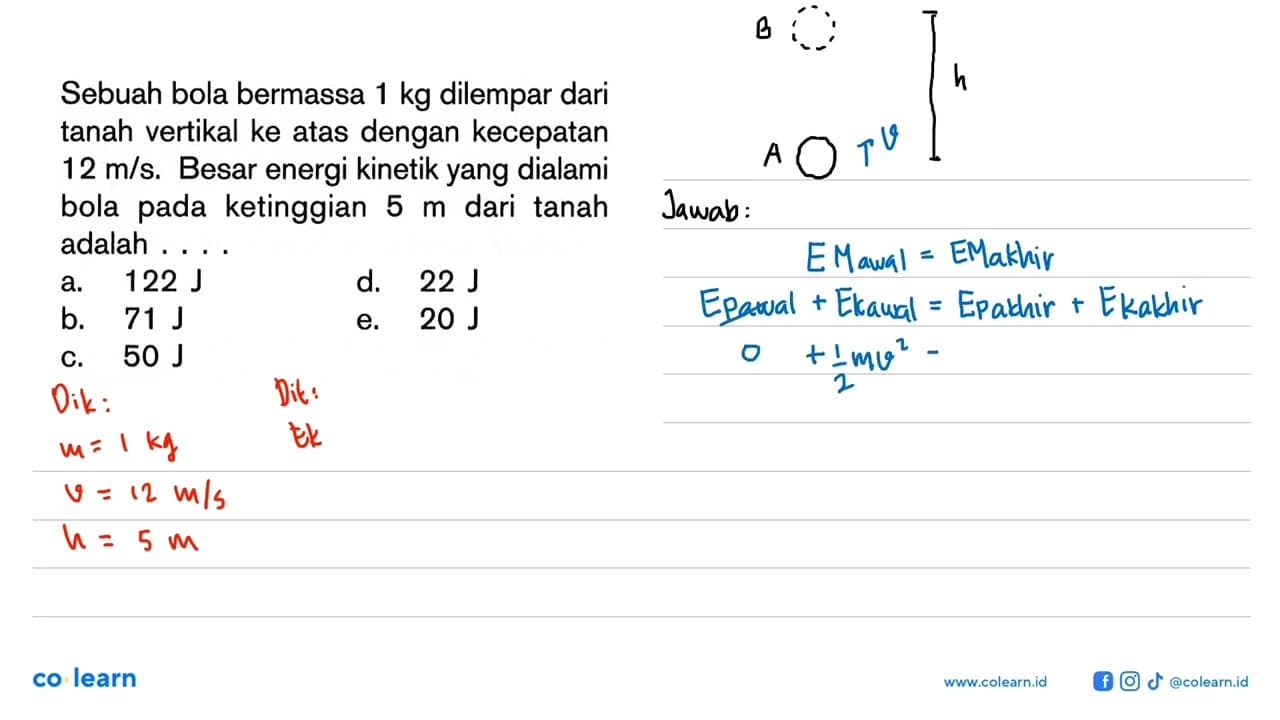 Sebuah bola bermassa 1 kg dilempar dari
tanah vertikal ke atas dengan kecepatan
12 m/s. Besar energi kinetik yang dialami
bola pada ketinggian 5 m dari tanah
adalah . . . .
a. 122 J d. 22 J
b. 71 J e. 20 J
c. 50 J
Dik: Dit:
m = 1 kg Ek
v = 12 m/s
h = 5 m
B
h
A v
Jawab:
EMawal = EMakhir
Epawal + Ekawal = Epakhir + Ekakhir
0 + 1/2 mv² -
co learn
www.colearn.id @colearn.id